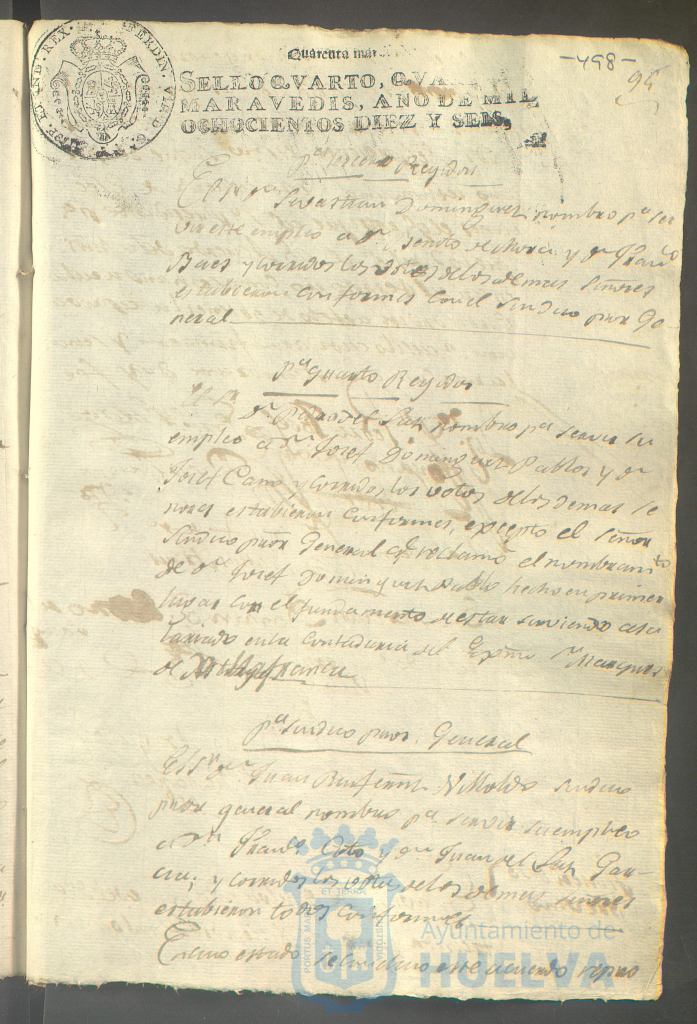 Quarenta mar
-498-
95
SELLO QVARTO, QVA
MARAVEDIS, AÑO DE MIL
OCHOCIENTOS DIEZ Y SEIS,
pª tercero Regidor
Sevastian Dominguez nombro pª ser
vir este empleo a Dn. Benito de Mora y Dn. Franco
Baes y corridos los votos de los demas señores
estubieron conformes con el Sindico pror Ge
neral
pª quarto Regidor
Dn. Pedro del Saz nombro pª servir su
empleo a Dn. Josef Dominguez Pablos y Dn.
Josef Cano y corridos los votos de los demas se
ñores estubieron conformes, excepto el señor
Sindico pror General qe reclamo el nombramto
de Dn. Josef Dominguez Pablo hecho en primer
lugar con el fundamento de estar sirviendo asa
lariado en la Contaduria del Exmo Sr. Marques
de Villafranca
pª Sindico pror. General
El Sr. Dn. Juan Sindico
pror general nombro pª servir su empleo
a Dn. Franco Coto y Dn. Juan del Saz Gar
cia; y corridos los votos de los demas señores
estubieron todos conformes
En cuio estado se concluio este acuerdo
Ayuntamiento de
HUELVA